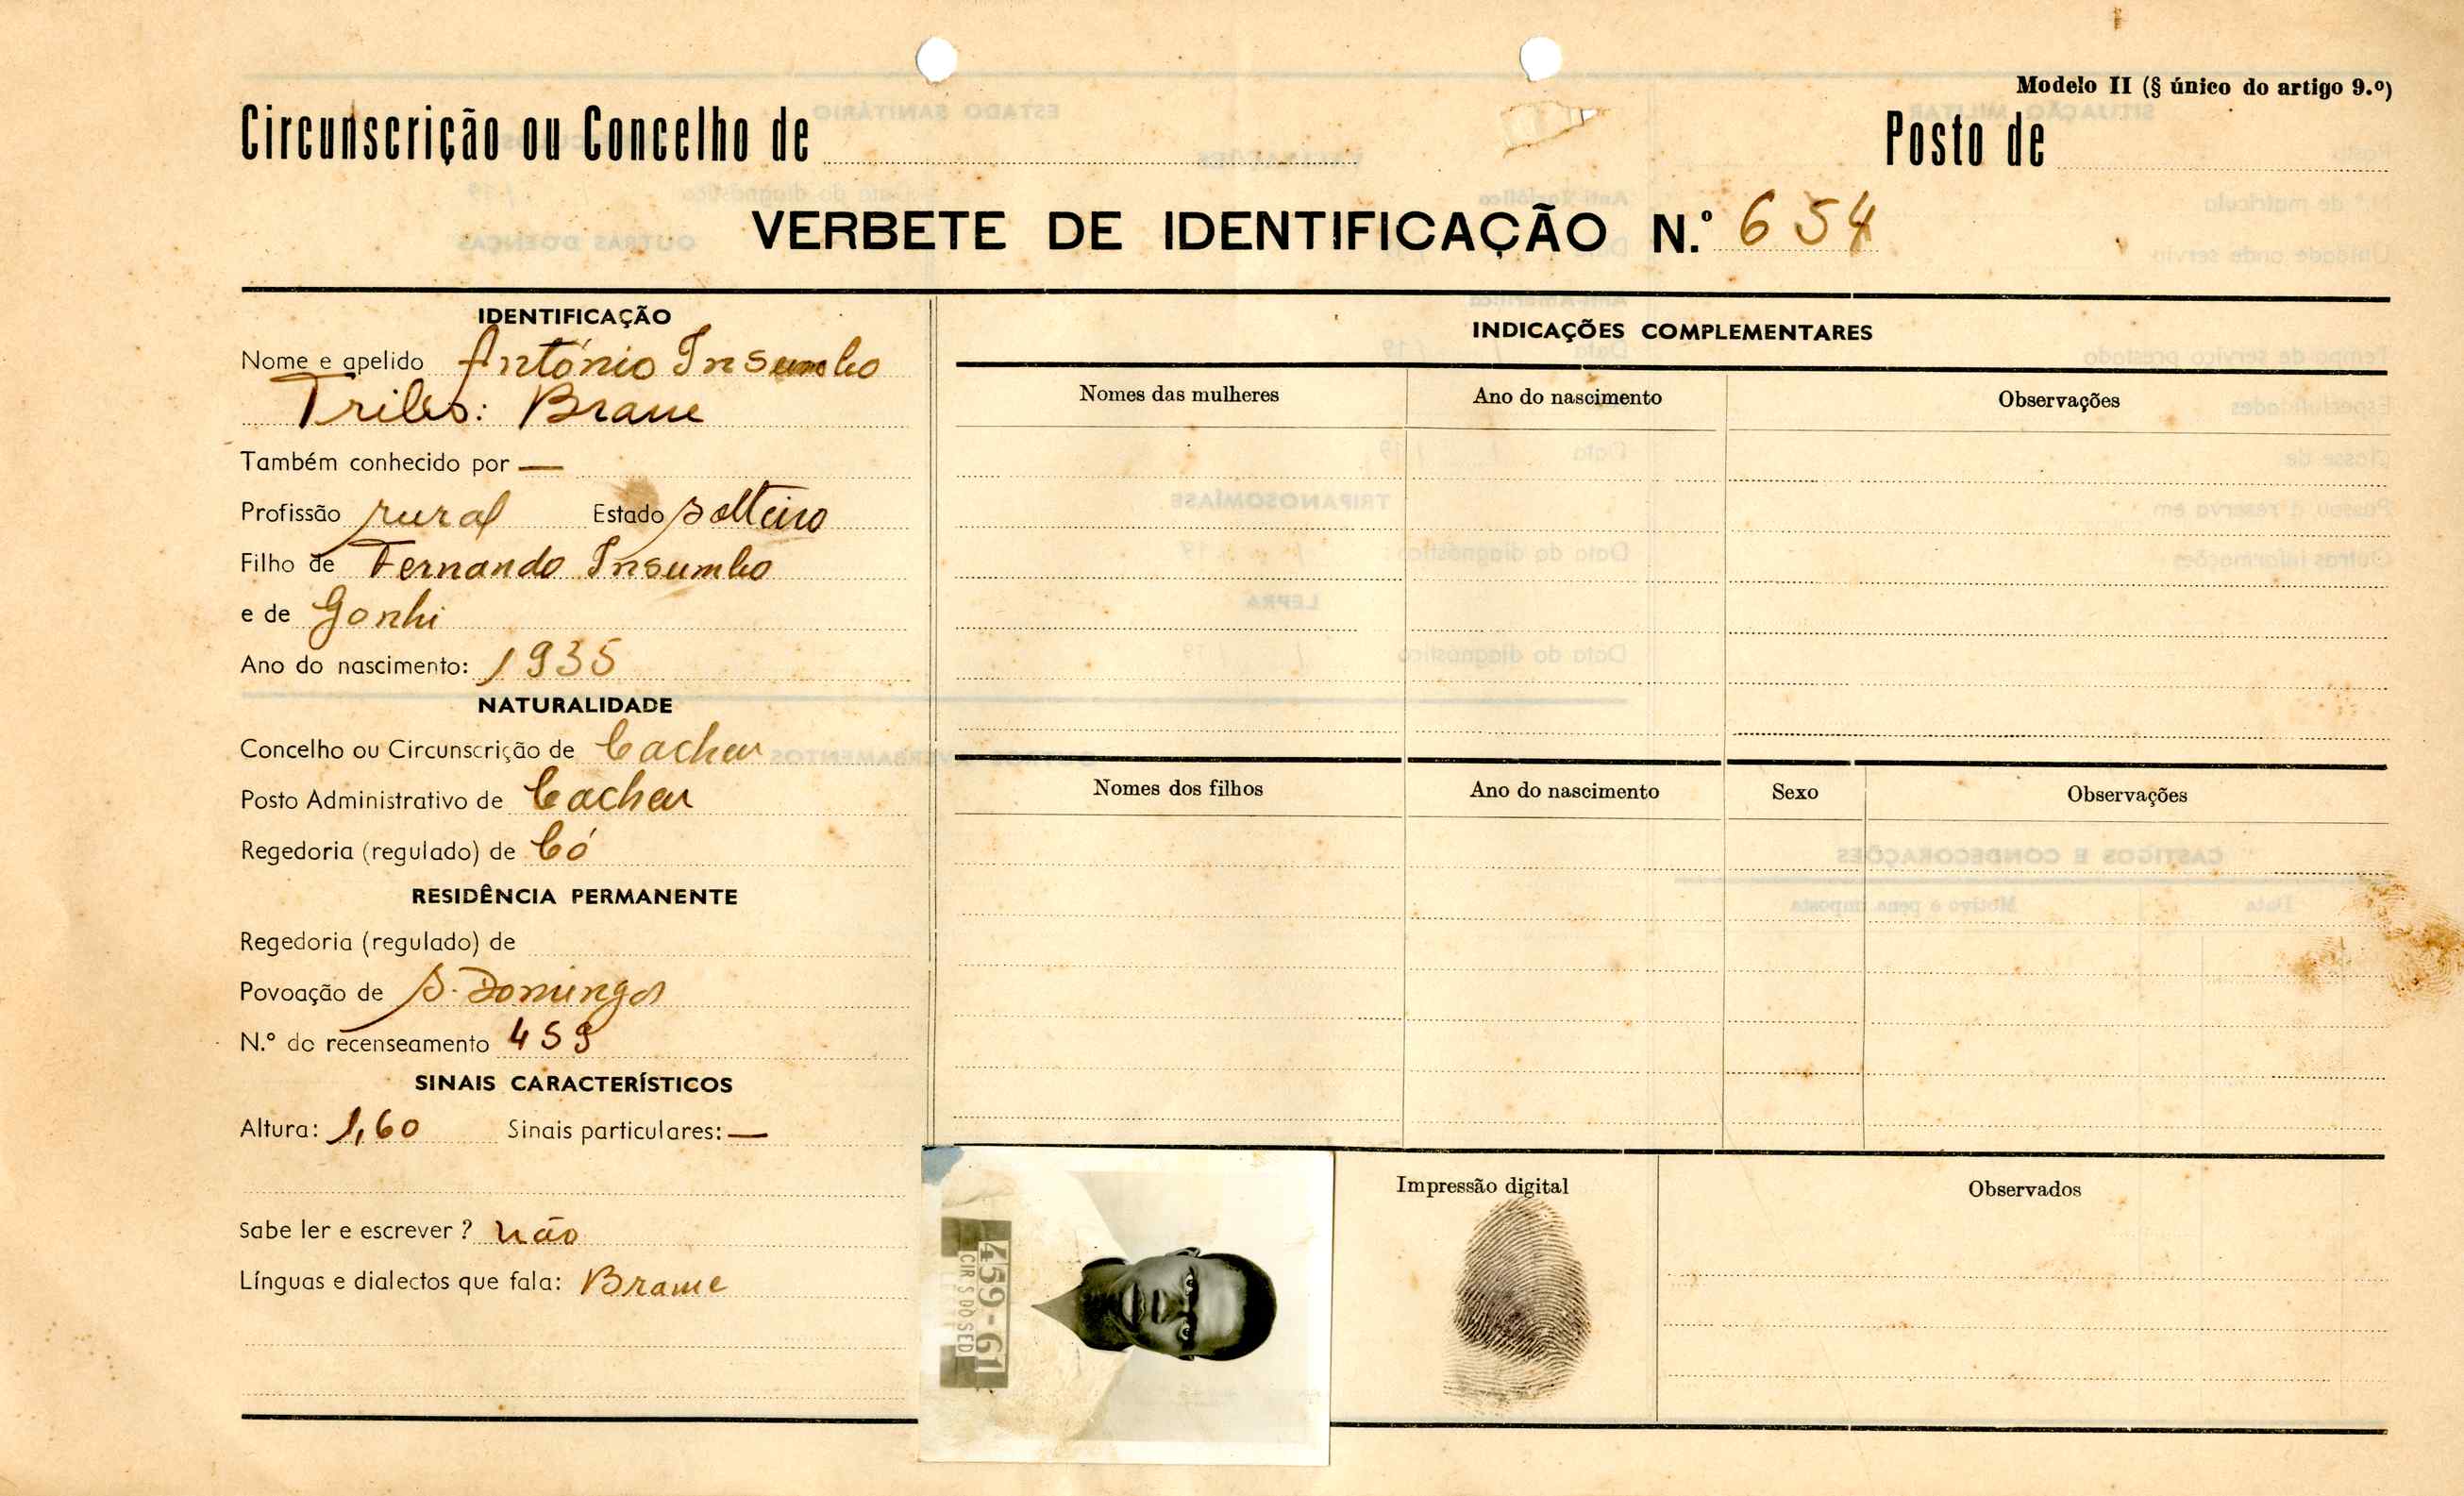 Modelo II (§ único do artigo 9.º)
Circunscrição ou Concelho de
Posto de
VERBETE DE IDENTIFICAÇÃO N.º 654
IDENTIFICAÇÃO
Nome e apelido António Insumbo
Tribo: Brame
Também conhecido por —
Profissão rural Estado solteiro
Filho de Fernando Insumbo
e de Gonhi
Ano do nascimento: 1935
NATURALIDADE
Concelho ou Circunscrição de Cacheu
Posto Administrativo de Cacheu
Regedoria (regulado) de Có
RESIDÊNCIA PERMANENTE
Regedoria (regulado) de
Povoação de S. Domingos
N.º do recenseamento 459
SINAIS CARACTERÍSTICOS
Altura: 1,60 Sinais particulares: —
Sabe ler e escrever? não
Línguas e dialectos que fala: Brame
INDICAÇÕES COMPLEMENTARES
Nomes das mulheres Ano do nascimento Observações
Nomes dos filhos Ano do nascimento Sexo Observações
459-61
CIR S DOS SED
Impressão digital
Observados